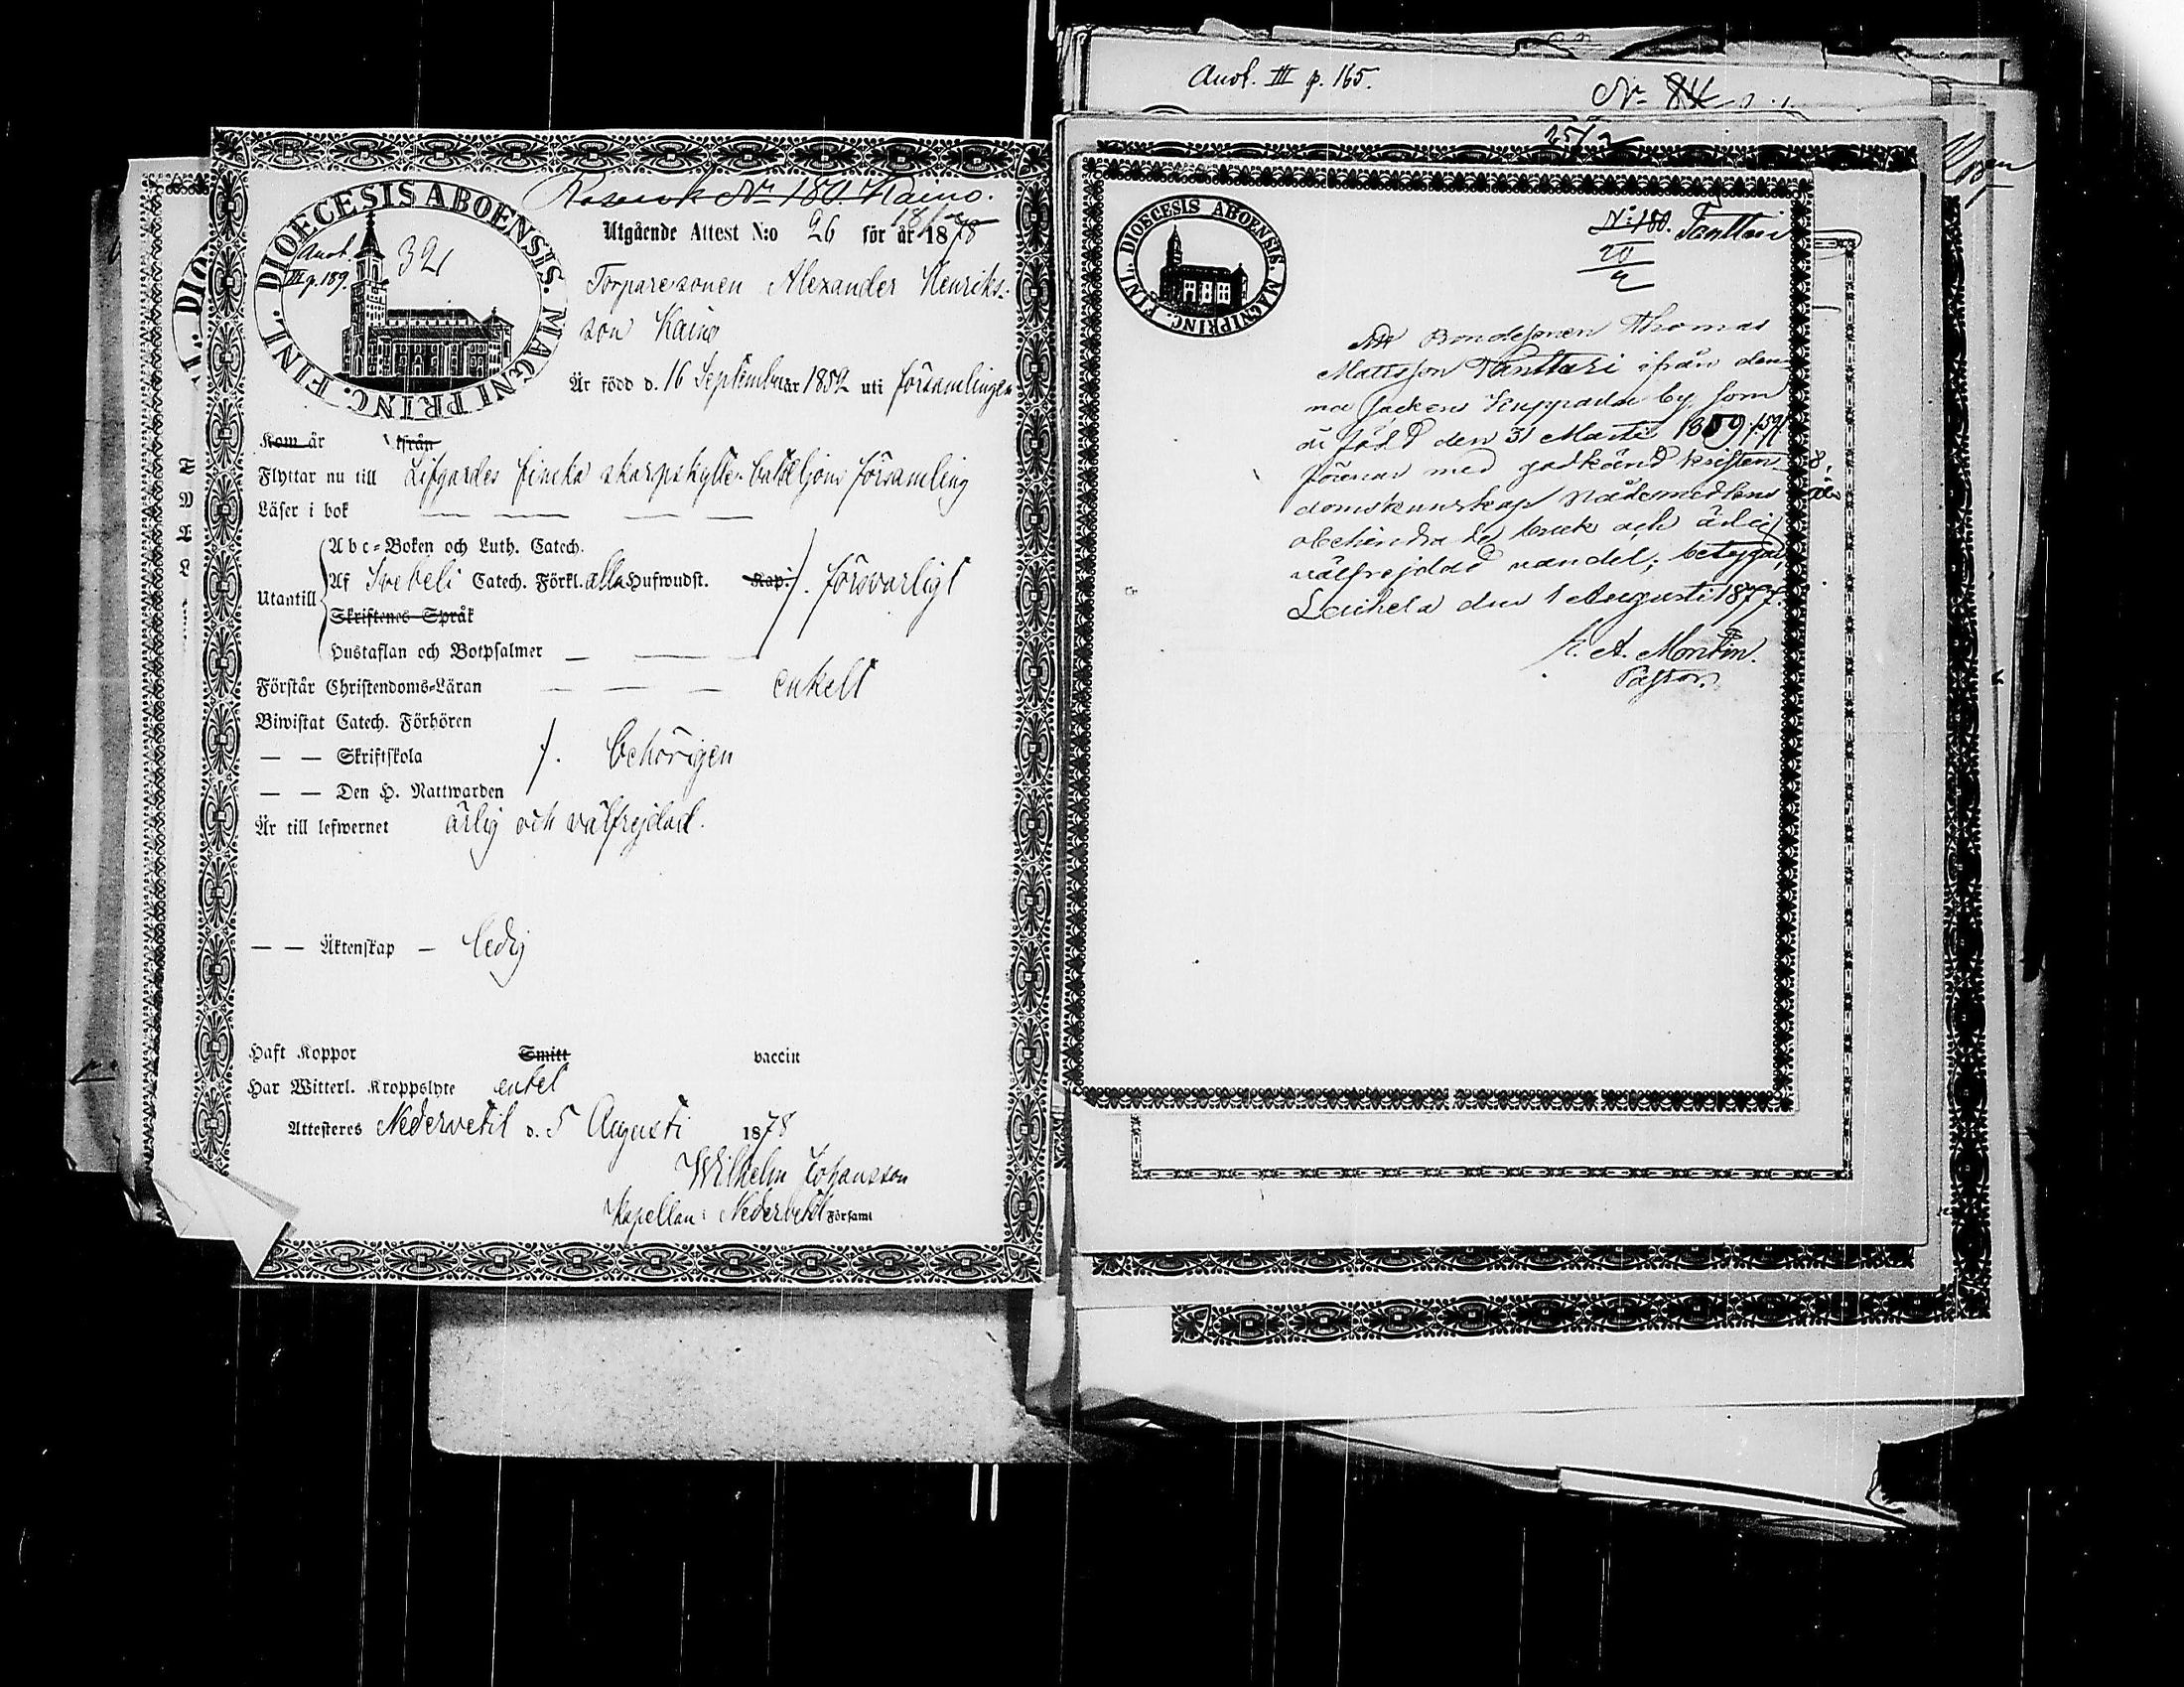 Anot. III p. 165.
No 84
25/2
Reserv No 180 Kaino.
18/2
DIOECESIS ABOENSIS. MAGNI PRINC. FINL.
Anot.
III p. 189.
321
Utgående Attest N:o 26 för år 1878
Torparesonen Alexander Henriks-
son Kaino
Är född d. 16 September 1852 uti församlingen
Kom år ifrån
Flyttar nu till Lifgardes finska skarpskytte-bataljons församling
Läser i bok
Utantill
Abc-Boken och Luth. Catech.
Af Svebeli Catech. Förkl. alla Hufwudst. Kap. försvarligt
Skriftenes Språk
Hustaflan och Botpsalmer
Förstår Christendoms-Läran enkelt
Biwistat Catech. Förhören
— — Skriftskola behörigen
— — Den H. Nattwarden
Är till lefwernet ärlig och välfrejdad.
— — Äktenskap — ledig
Haft Koppor Smitt vaccin
Har Witterl. Kroppslyte
Attesteres Nedervetil d. 5 Augusti 1878
Wilhelm Johansson
Kapellan i Nedervetil Förſaml
DIOECESIS ABOENSIS. MAGNI PRINC. FINL.
No 180. Tanttari
20
Att Bondesonen Thomas
Mattsson Tanttari ifrån den-
na sockens by som
är född den 31 Martii 1859 /59/
förenar med godkänd kristen-
domskunskap nådemedlens
obehindrade bruk och ärlig
välfrejdad vandel; betygar,
Laihela den 1 Augusti 1877.
K. A. Montin.
Pastor.